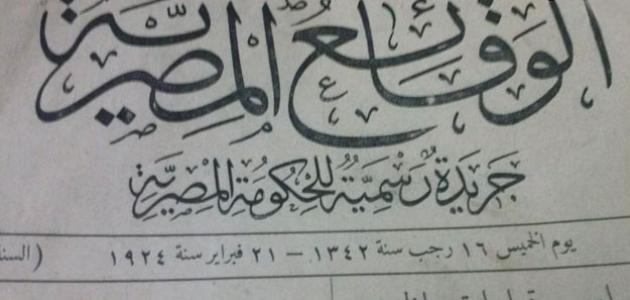 الوقائع المصرية
جَرِيدَة رَسْمِيَّة لِلحُكُومَة المِصْرِيَّة
يوم الخميس ١٦ رجب سنة ١٣٤٢ — ٢١ فبراير سنة ١٩٢٤
(السنة